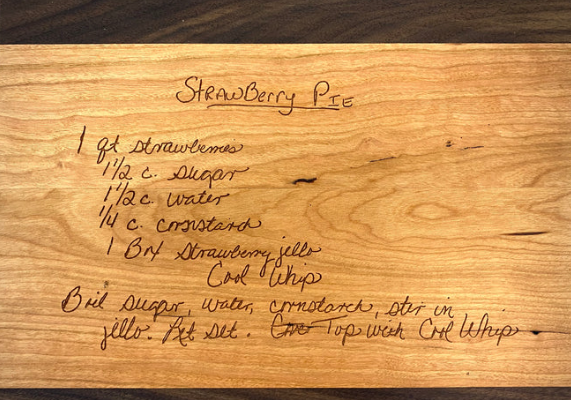 Strawberry Pie
1 qt strawberries
1 1/2 c. sugar
1 1/2 c. water
1/4 c. cornstarch
1 Box strawberry jello
Cool Whip
Boil sugar, water, cornstarch, ster in
jello. Let set. Top with Cool Whip